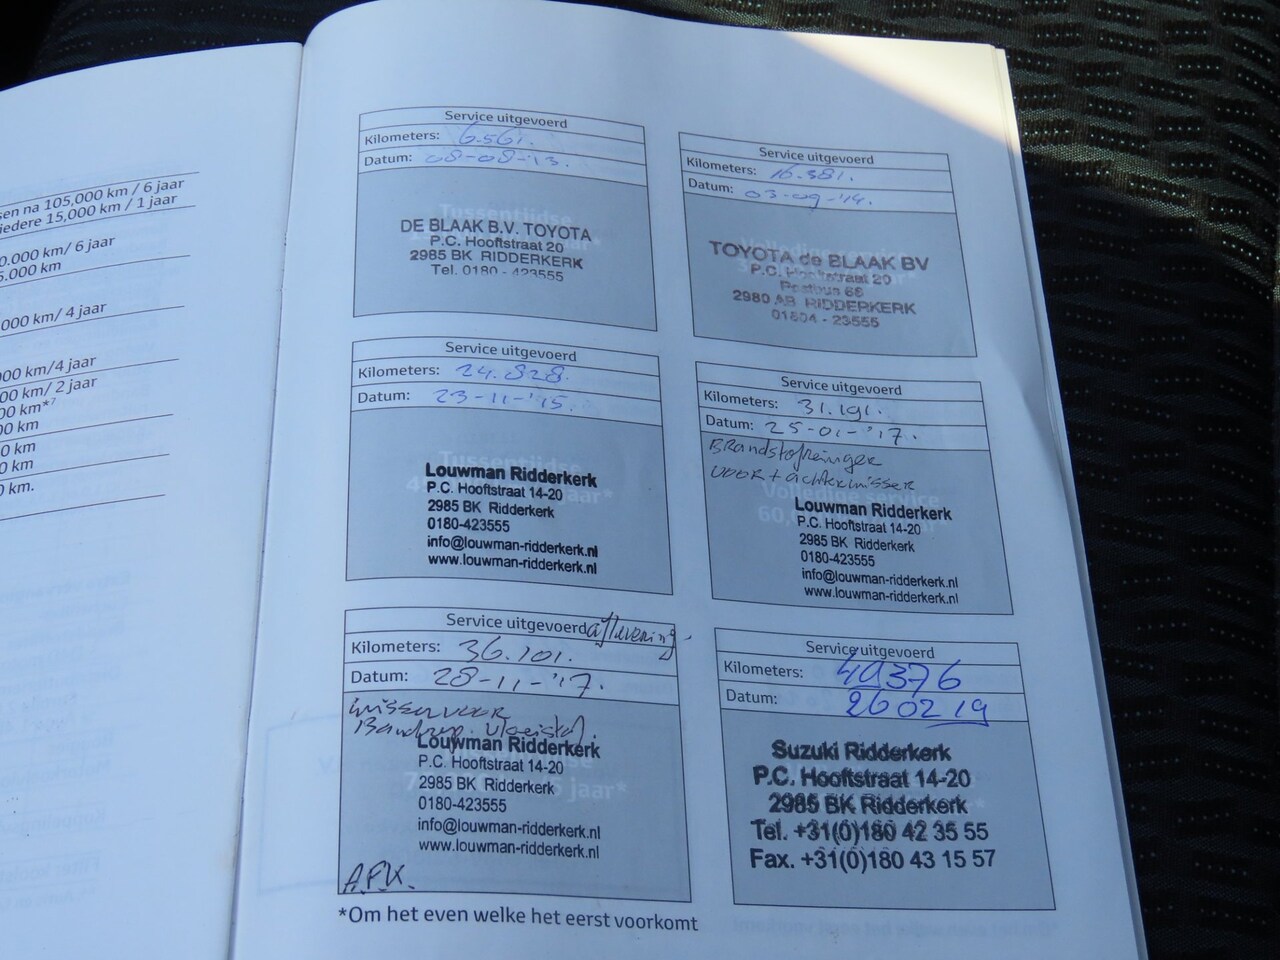 sen na 105,000 km / 6 jaar
iedere 15,000 km / 1 jaar
0.000 km/ 6 jaar
5.000 km
000 km/ 4 jaar
00 km/4 jaar
00 km/ 2 jaar
00 km*7
00 km
0 km
0 km
0 km.
Service uitgevoerd
Kilometers: 6.561.
Datum: 08-08-'13.
DE BLAAK B.V. TOYOTA
P.C. Hooftstraat 20
2985 BK RIDDERKERK
Tel. 0180 - 423555
Service uitgevoerd
Kilometers: 16.381.
Datum: 03-09-'14.
TOYOTA de BLAAK BV
P.C. Hooftstraat 20
Postbus 68
2980 AB RIDDERKERK
01804 - 23555
Service uitgevoerd
Kilometers: 24.828.
Datum: 23-11-'15.
Louwman Ridderkerk
P.C. Hooftstraat 14-20
2985 BK Ridderkerk
0180-423555
info@louwman-ridderkerk.nl
www.louwman-ridderkerk.nl
Service uitgevoerd
Kilometers: 31.191.
Datum: 25-01-'17.
Brandstofreiniger
voor + achterwisser
Louwman Ridderkerk
P.C. Hooftstraat 14-20
2985 BK Ridderkerk
0180-423555
info@louwman-ridderkerk.nl
www.louwman-ridderkerk.nl
Service uitgevoerd aflevering
Kilometers: 36.101.
Datum: 28-11-'17.
wisser voor
Bandrep. vloeistof.
Louwman Ridderkerk
P.C. Hooftstraat 14-20
2985 BK Ridderkerk
0180-423555
info@louwman-ridderkerk.nl
www.louwman-ridderkerk.nl
A.P.K.
Service uitgevoerd
Kilometers: 40376
Datum: 26 02 19
Suzuki Ridderkerk
P.C. Hooftstraat 14-20
2985 BK Ridderkerk
Tel. +31(0)180 42 35 55
Fax. +31(0)180 43 15 57
*Om het even welke het eerst voorkomt